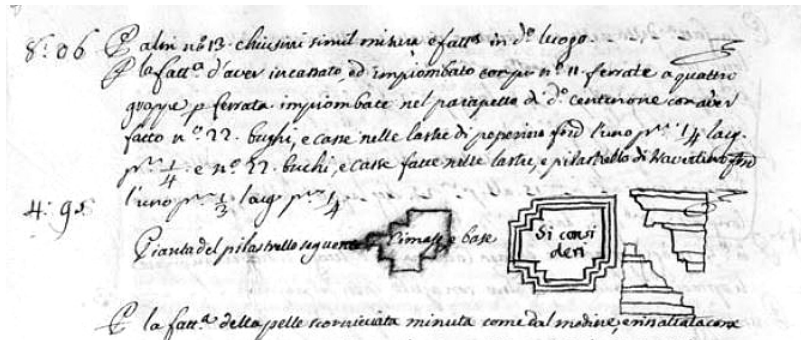 8: 06 P altri nº 13. chiusini simil misura e fattᵃ in dº luogo
P la fattᵃ d'aver incassato, ed impiombato corpi nº 11. ferrate a quattro
grappe p ferrata impiombate nel parapetto di dº centinone con aver
fatto nº 22. buchi, e casse nelle lastre di peperino fond l'uno pᵐ 1/4 larg.
pᵐ 1/4. e nº 22. buchi, e casse fatte nelle lastre, e pilastrello di travertino fond
4: 95 l'uno pᵐ 1/3 larg pᵐ 1/4.
Pianta del pilastrello seguente Cimase e base Si consi
deri
P la fattᵃ della pelle scorniciata minuta come dal modine, e risaltata con